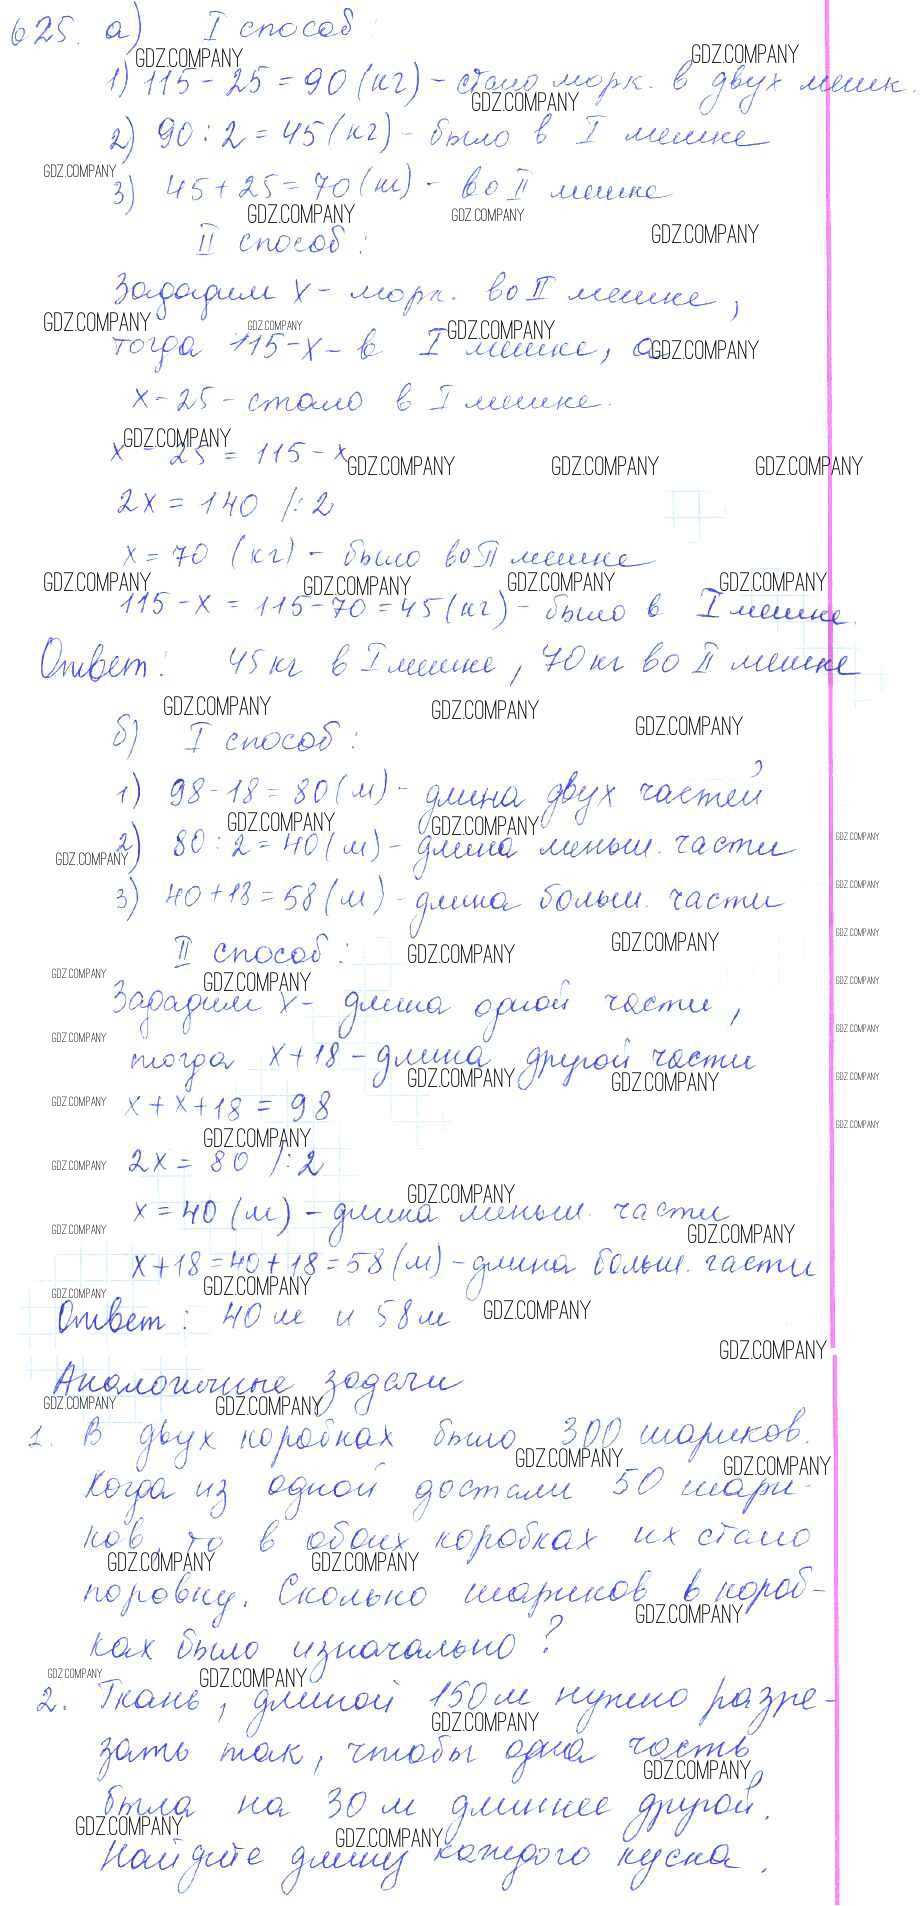 625. а) I способ:
1) 115 - 25 = 90 (кг) - стало морк. в двух мешк.
2) 90 : 2 = 45 (кг) - было в I мешке
3) 45 + 25 = 70 (кг) - во II мешке
II способ:
Зададим x - морк. во II мешке,
тогда 115 - x - в I мешке, а
x - 25 - стало в I мешке.
x - 25 = 115 - x
2x = 140 /: 2
x = 70 (кг) - было во II мешке
115 - x = 115 - 70 = 45 (кг) - было в I мешке.
Ответ: 45 кг в I мешке, 70 кг во II мешке
б) I способ:
1) 98 - 18 = 80 (м) - длина двух частей
2) 80 : 2 = 40 (м) - длина меньш. части
3) 40 + 18 = 58 (м) - длина больш. части
II способ:
Зададим x - длина одной части,
тогда x + 18 - длина другой части
x + x + 18 = 98
2x = 80 /: 2
x = 40 (м) - длина меньш. части
x + 18 = 40 + 18 = 58 (м) - длина больш. части
Ответ: 40 м и 58 м
Аналогичные задачи
1. В двух коробках было 300 шариков.
Когда из одной достали 50 шари-
ков, то в обоих коробках их стало
поровну. Сколько шариков в короб-
ках было изначально?
2. Ткань, длиной 150 м нужно разре-
зать так, чтобы одна часть
была на 30 м длиннее другой.
Найдите длину каждого куска.
GDZ.COMPANY